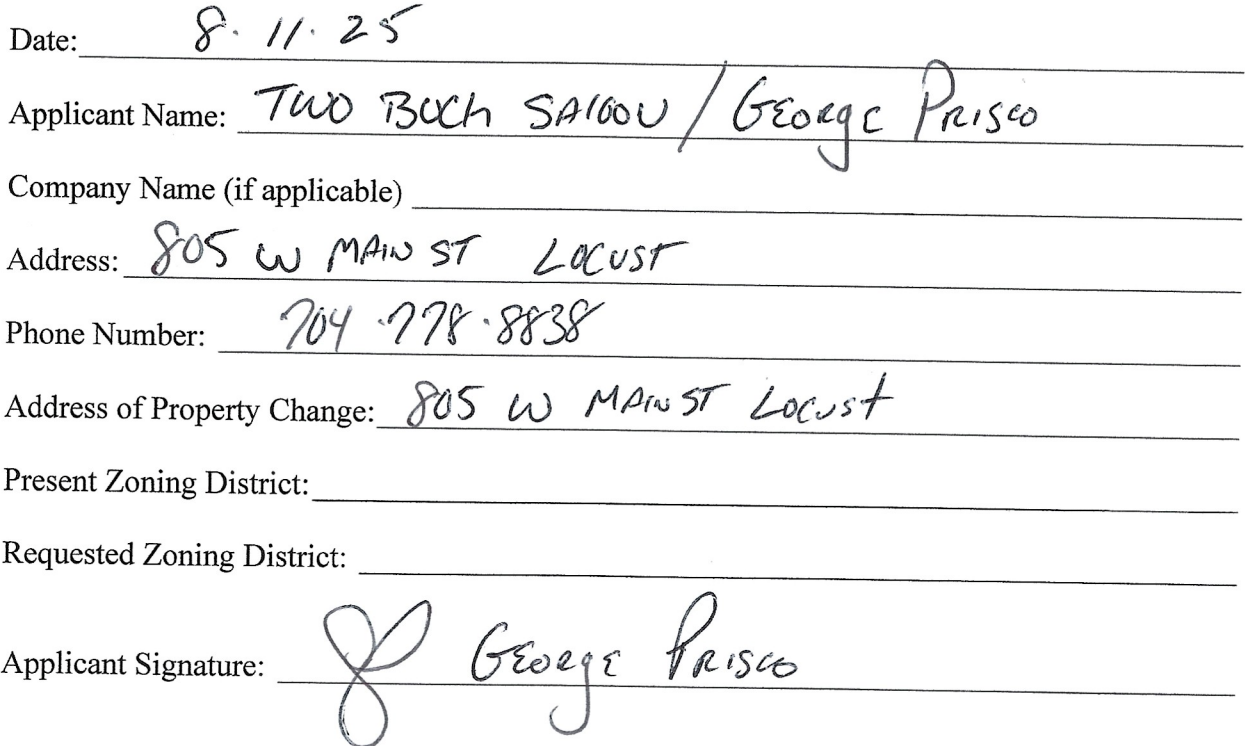 Date: 8.11.25
Applicant Name: TWO BUCK SALOON / GEORGE PRISCO
Company Name (if applicable)
Address: 805 W MAIN ST LOCUST
Phone Number: 704.778.8838
Address of Property Change: 805 W MAIN ST LOCUST
Present Zoning District:
Requested Zoning District:
Applicant Signature: GP GEORGE PRISCO